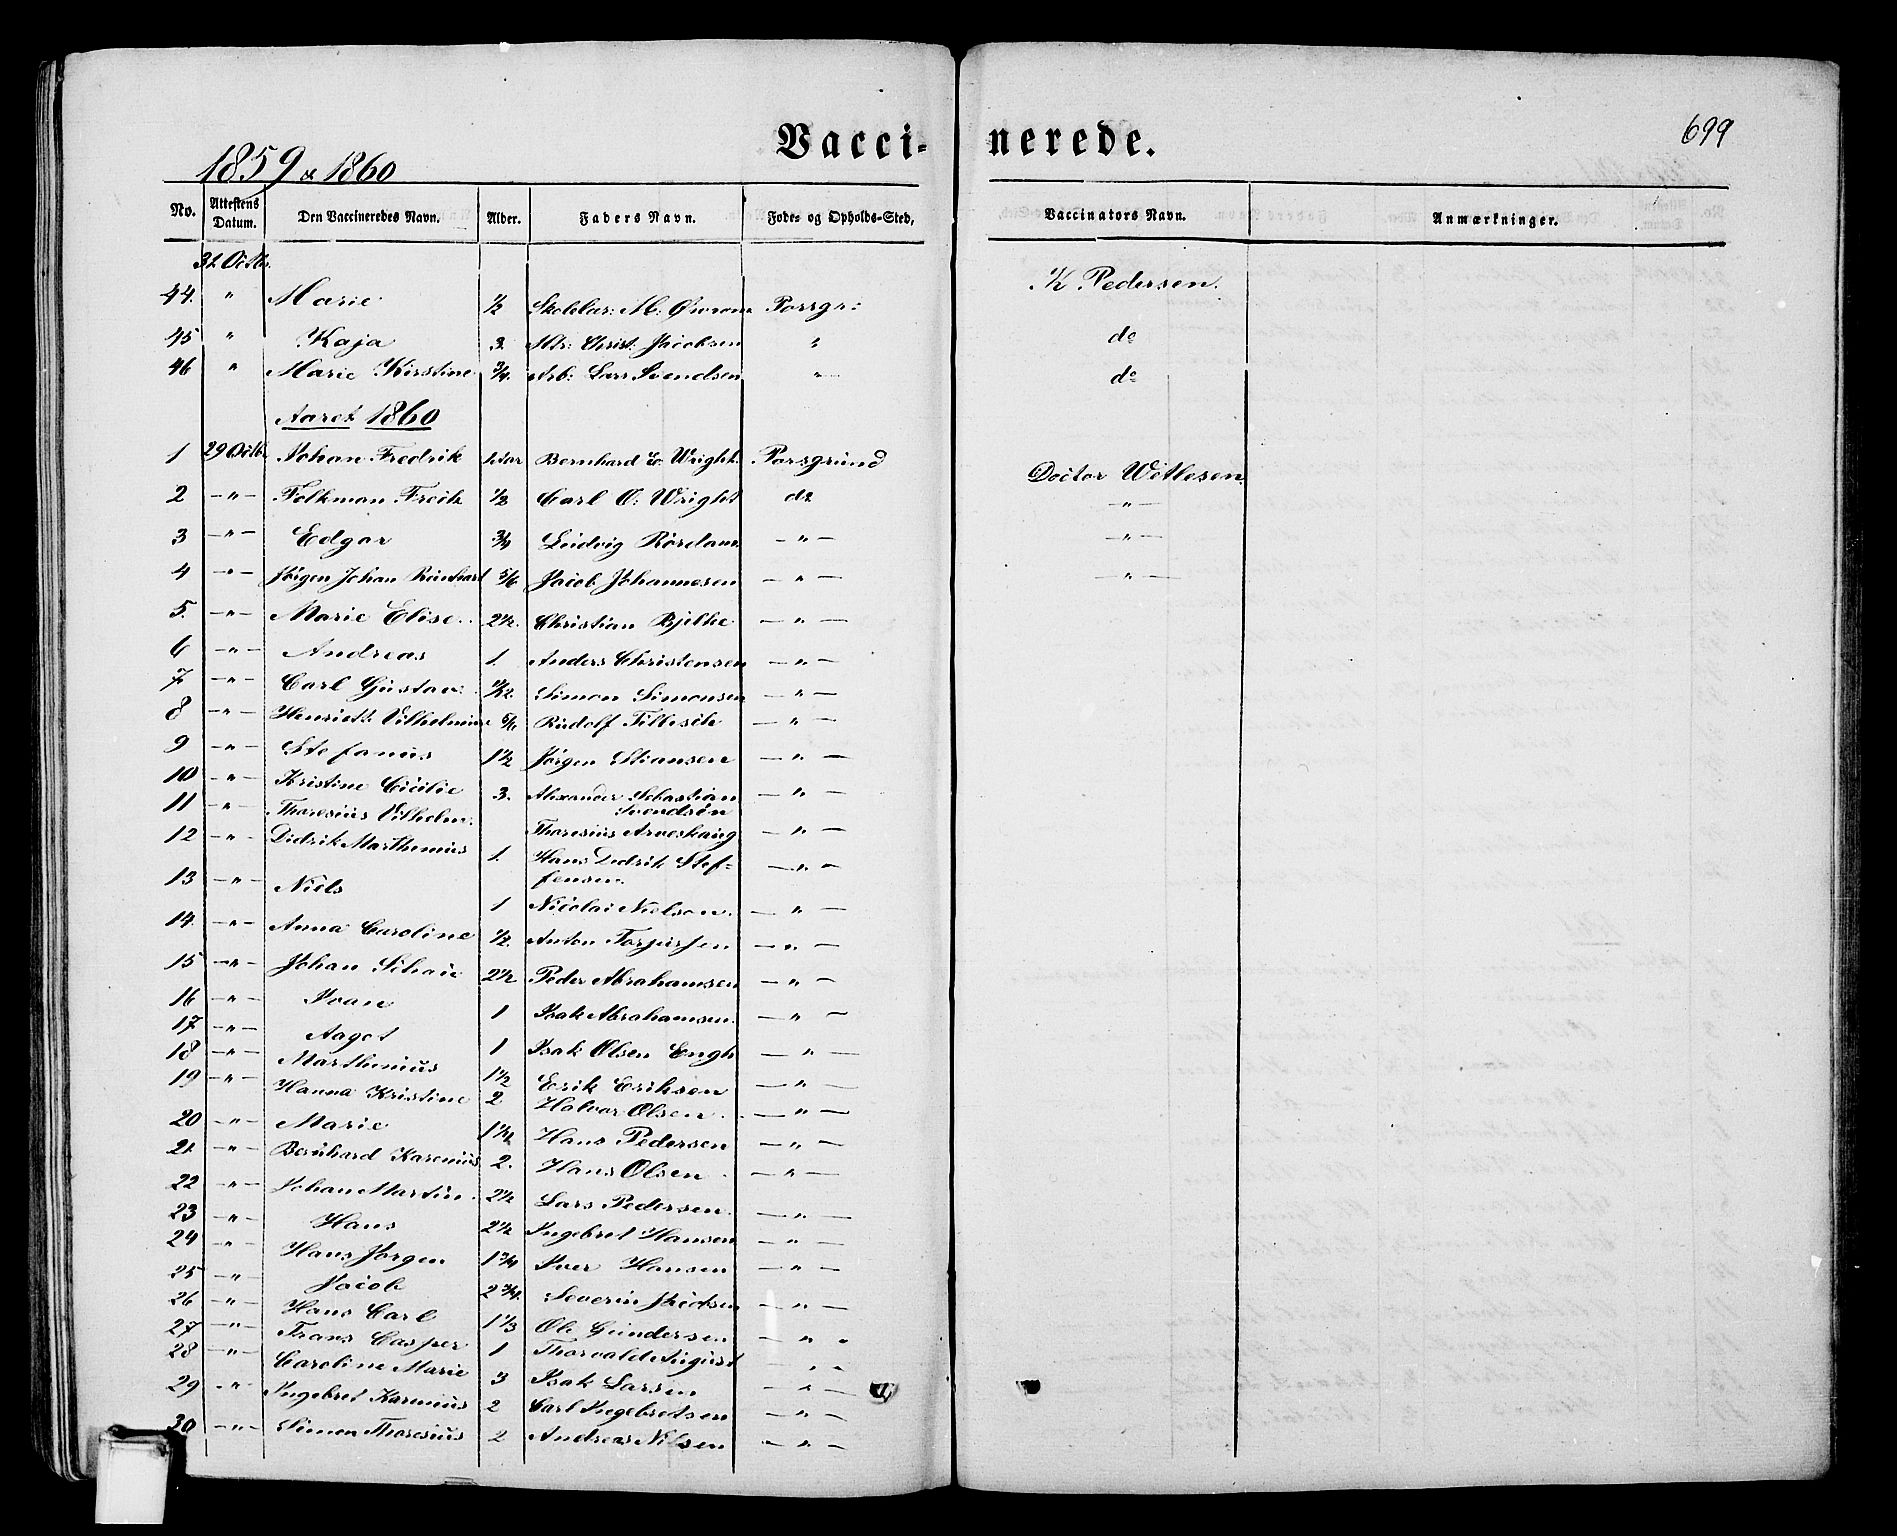 Vacci- nerede.
699
1859 & 1860
No. Attestens Datum. Den Vaccineredes Navn. Alder. Faders Navn. Føde- og Opholds-Sted, Vaccinators Navn. Anmærkninger.
31 Octbr.
44. " Marie 1/2 M: Porsgr: K Pedersen.
45 " Kaja 3. Christ: Jacobsen " do
46 " Marie Kirstine 3/4. Arb: Lars Svendsen " do
Aaret 1860
1 29 Octbr Johan Fredrik Bernhard C. Wright. Porsgrund Doctor Wetlesen.
2 — " — Folkman Fredk 1/2 Carl O: Wright do — " —
3 — " — Edgar 3/4 Ludvig Rørdam — " — — " —
4 — " — Jørgen Johan Reinhart 5/6 Jacob Johannesen — " — — " —
5. — " — Marie Elise. 2 1/2. Christian Bjelke — " —
6 — " — Andreas 1. Anders Christensen — " —
7 — " — Carl Gustav: Simon Simonsen — " —
8 — " — Henriette Vilhelmine Rudolf Fillesch — " —
9 — " — Stefanus 1 1/2 Jørgen Stiansen — " —
10 — " — Kristine Cicilie 3. Alexander Sebastian Svendsøn — " —
11 — " — Thoresius Vilhelm. Thoresius Arveskaug — " —
12 — " — Didrik Marthenius 1. Hans Dedrik Stef-
fensen. — " —
13 — " — Niels 1 Nicolai Nielsen. — " —
14. — " — Anna Caroline 1/2. Anton Torjusen — " —
15 — " — Johan 2 1/2 Peder Abrahamsen — " —
16 — " — Ivan 1 Isak Abrahamsen. — " —
17 — " — Aagot 1 Isak Olsen Engh — " —
18 — " — Marthenius 1 1/2 Erik Eriksen — " —
19 — " — Hanna Kristine 2 Halvor Olsen. — " —
20 — " — Marie Hans Pedersen — " —
21. — " — Bernhard Karenius 2. Hans Olsen — " —
22 — " — Johan Martin. 2 1/2 Lars Pedersen. — " —
23 — " — Hans 2 1/2 Ingebret Hansen — " —
24 — " — Hans Jørgen 1 3/4 Iver Hansen — " —
25 — " — Jacob 2 3/4. Severin — " —
26 — " — Hans Carl 1 1/3 Ole Gundersen — " —
27 — " — Frans Casper 1 Thorvald August — " —
28 — " — Caroline Marie 3 Isak Larsen — " —
29 — " — Ingebret Karenius 2 Carl Ingebretsen — " —
30 — " — Simen Thoresius 2 Andreas Nilsen — " —